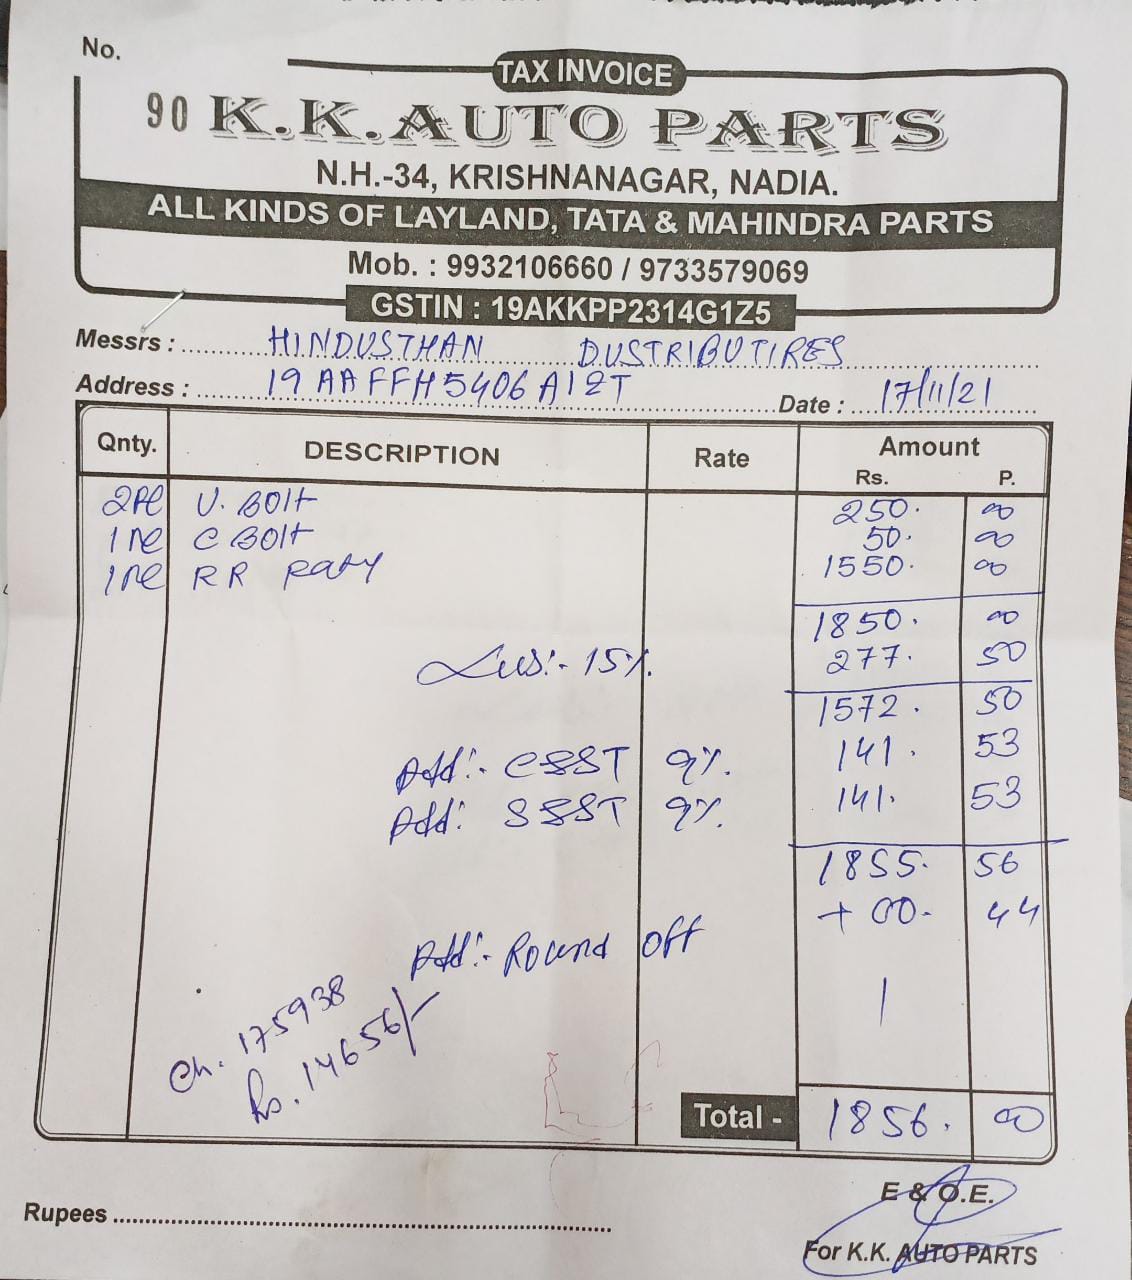 No.
TAX INVOICE
90 K.K. AUTO PARTS
N.H.-34, KRISHNANAGAR, NADIA.
ALL KINDS OF LAYLAND, TATA & MAHINDRA PARTS
Mob. : 9932106660 / 9733579069
GSTIN : 19AKKPP2314G1Z5
Messrs : HINDUSTHAN DUSTRIBUTIRES
Address : 19AAFFH5406A1ZT Date : 17/11/21
Qnty. DESCRIPTION Rate Amount
Rs. P.
2Pc U. BOlt 250. 00
1Pc C BOlt 50. 00
1Pc RR 1550. 00
1850. 00
Les:- 15%. 277. 50
1572. 50
Add:- CGST 9%. 141. 53
Add: SGST 9%. 141. 53
1855. 56
+ 00. 44
Add:- Round Off
Ch. 175938
Rs. 14656/-
Total - 1856. 00
Rupees
E & O.E.
For K.K. AUTO PARTS